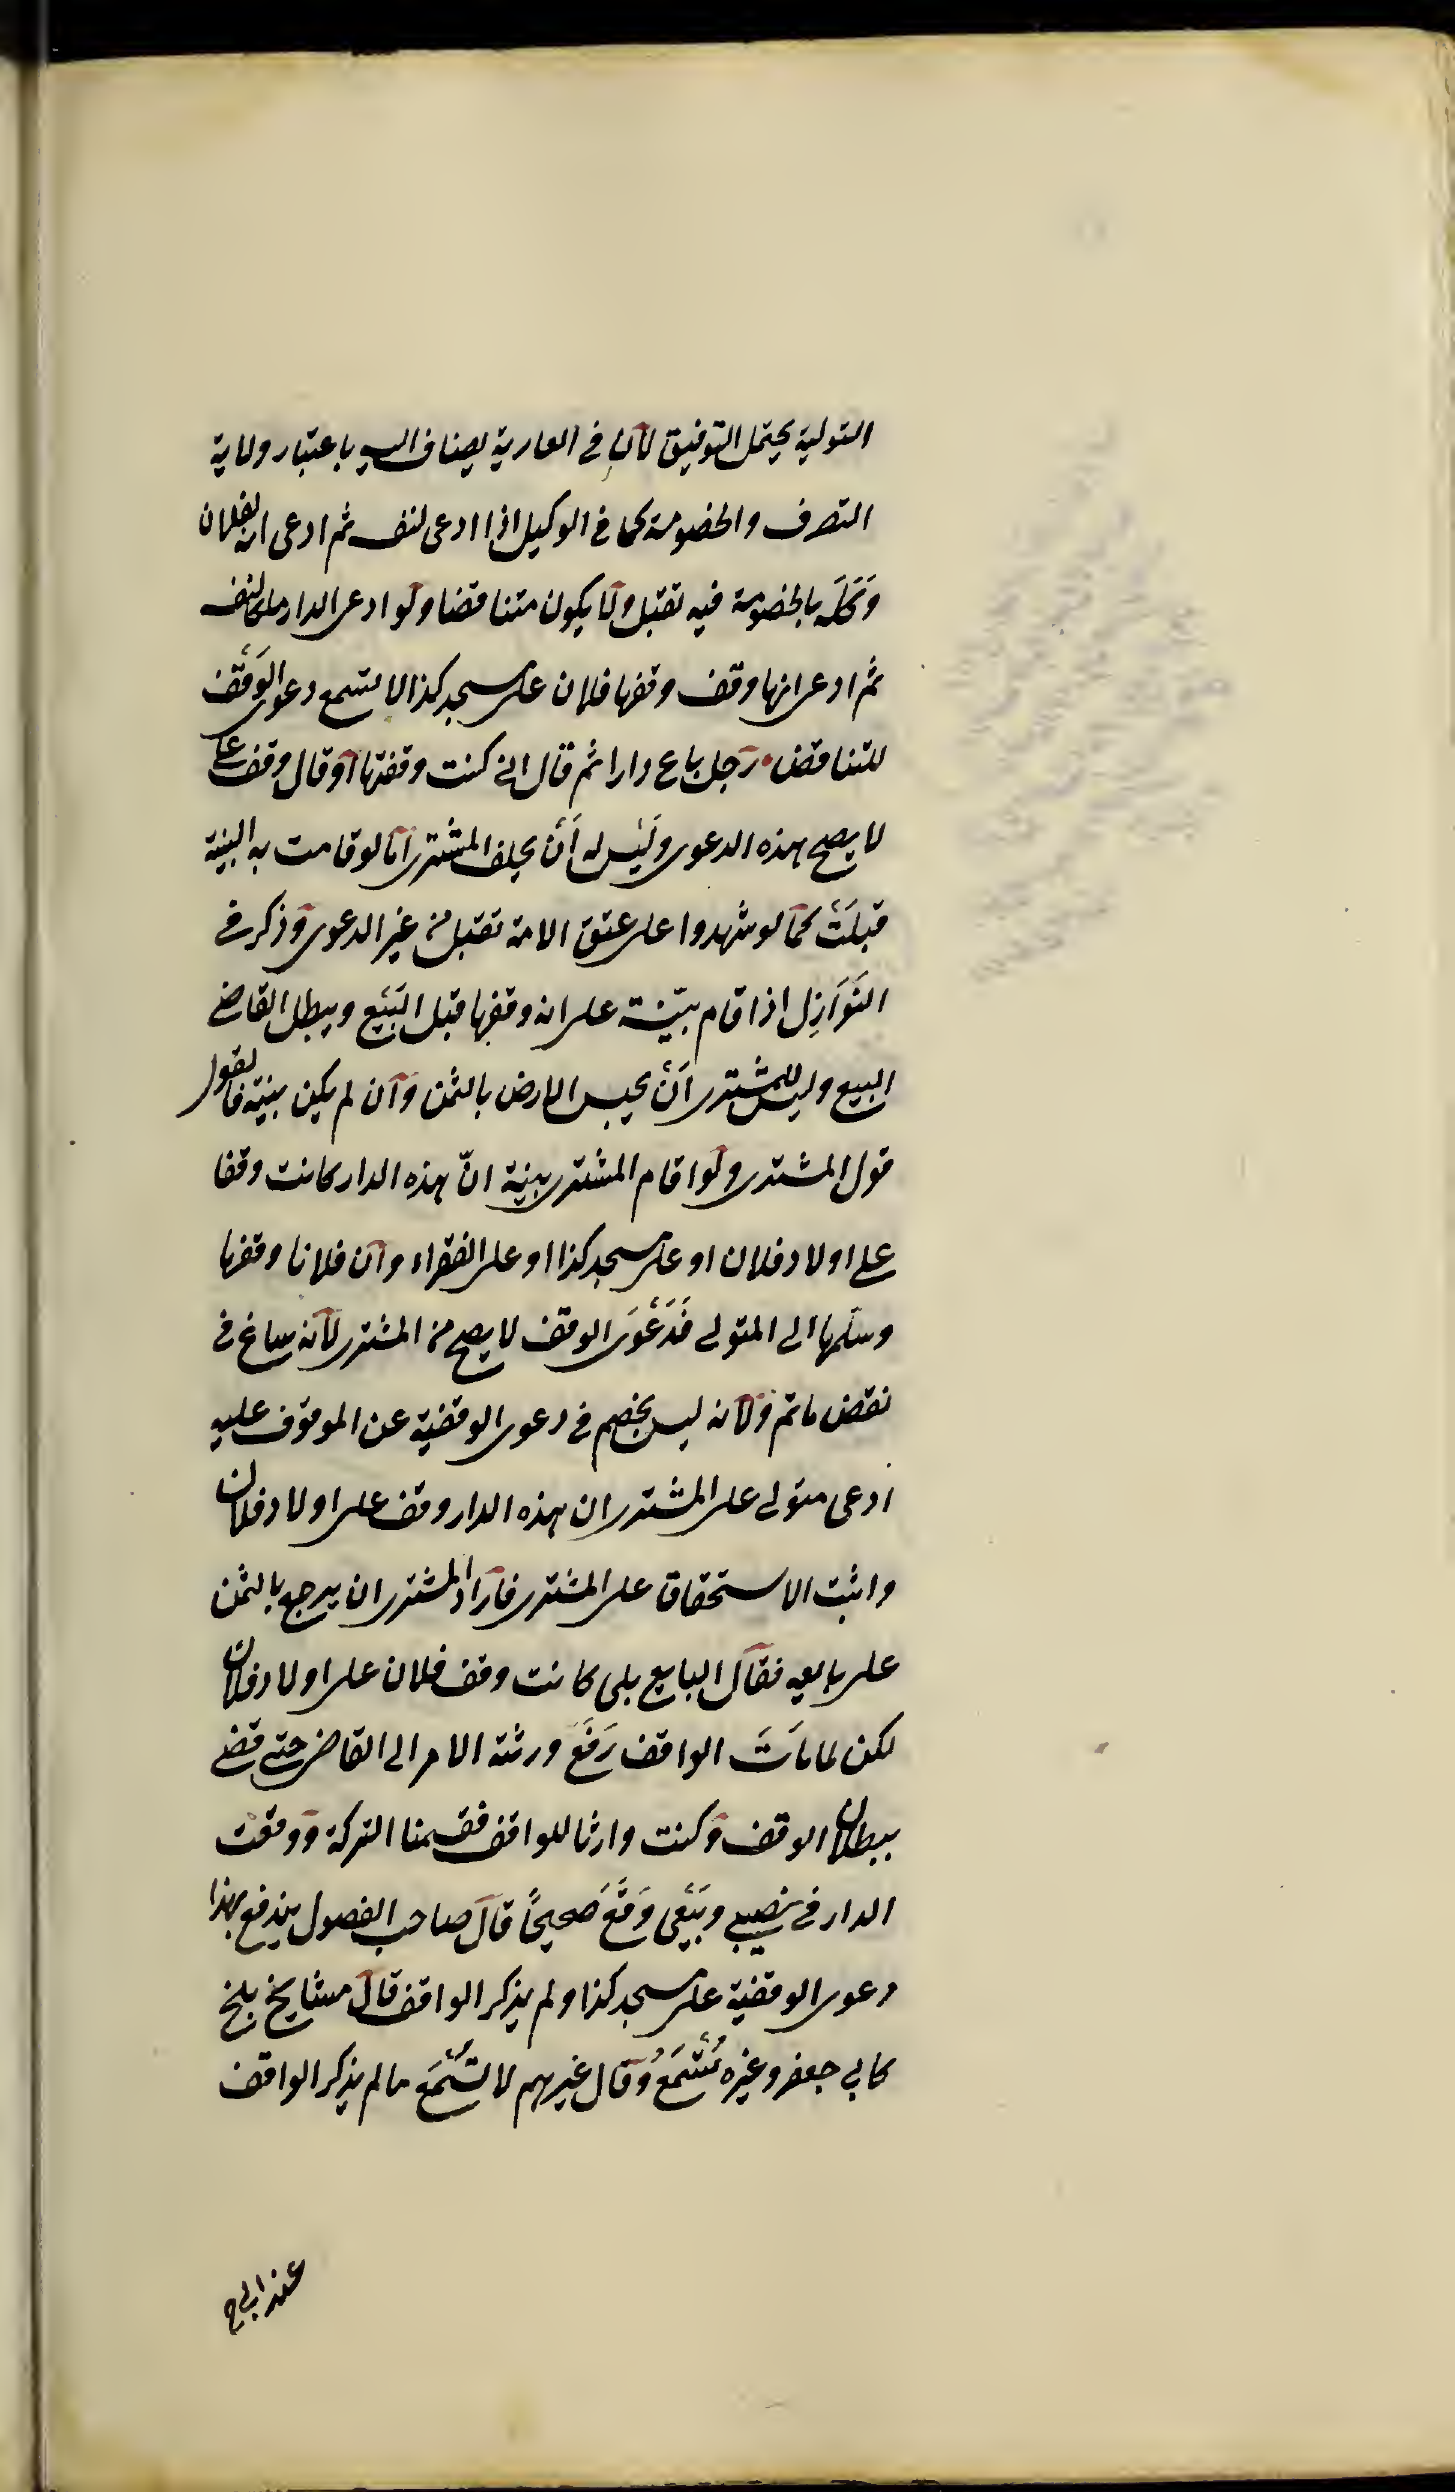 التولية يحتمل التوفيق لان في العارية يضاف اليه باعتبار ولاية
التصرف والخصومة كما في الوكيل اذا ادعى لنفسه ثم ادعى انه لفلان
وَكَّلَه بالخصومة فيه تقبل ولا يكون متناقضا ولو ادعى الدار ملكا لنفسه
ثم ادعى انها وقف وقفها فلان على مسجد كذا لا تسمع دعوى الوَقْف
للتناقض رجل باع دارا ثم قال اني كنت وقفتها او قال وقف علي
لا يصح هذه الدعوى ولَيْس له اَنْ يحلف المشترى اما لو قامت به البينة
قبلَتْ كما لو شهدوا على عتق الامة تقبل من غير الدعوى وذكر في
النَوَازِل اذا قام بيّنة على انه وقفها قبل البَيْع ويبطل القاضي
البيع وليس للمشترى اَنْ يحبس الارض بالثمن وان لم يكن بينة فالقول
قول المشترى ولو اقام المشترى بينة انّ هذه الدار كانت وقفا
على اولاد فلان او على مسجد كذا او على الفقراء وان فلانا وقفها
وسلّمها الى المتولي فَدَعْوَى الوقف لا يصح من المشترى لانه ساع في
نقض ما تم ولانه ليس بخصم في دعوى الوقفية عن الموقوف عليه
ادعى متولي على المشترى ان هذه الدار وقف على اولاد فلان
واثبت الاستحقاق على المشترى فاراد المشترى ان يرجع بالثمن
على بايعه فقال البايع بلى كانت وقف فلان على اولاد فلان
لكن لما مَاتَ الواقف رَفَعَ ورثته الامر الى القاضي حتى قضى
ببطلان الوقف وكنت وارثا للواقف فقسمنا التركة ووقعت
الدار في نصيبي وبَيْعِى وَقَعَ صَحيحًا قال صاحب الفصول يندفع بهذا
دعوى الوقفية على مسجد كذا ولم يذكر الواقف قال مشايخ بلخ
كابي جعفر وغيره تُسْمَعُ وقال غيرهم لا تُسْمَع ما لم يذكر الواقف
عند ابي ح